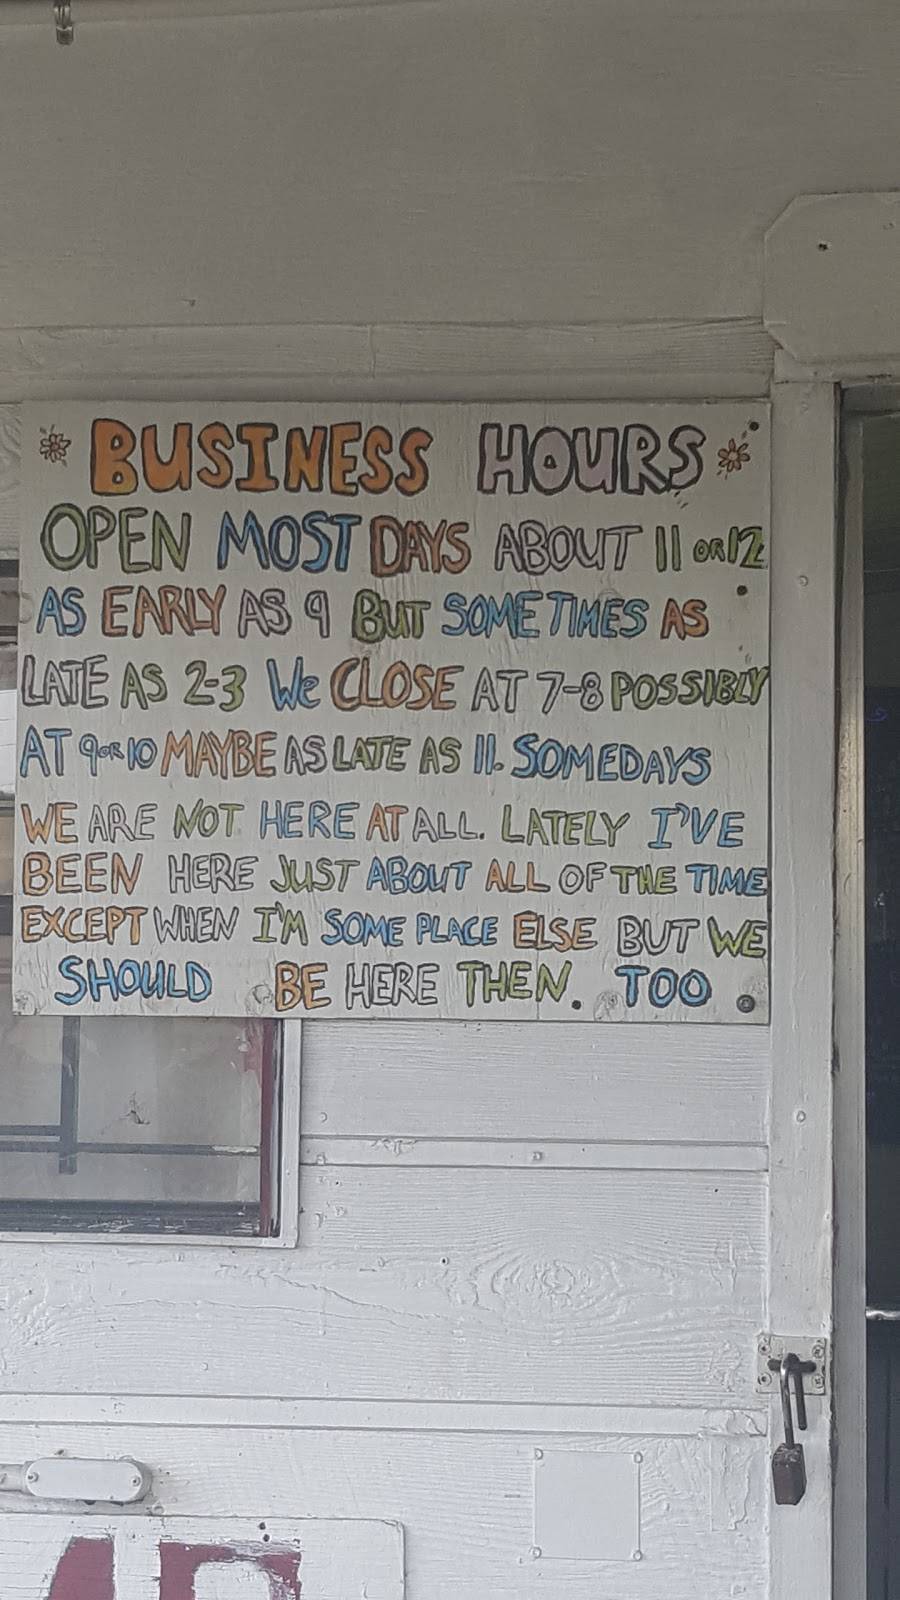 BUSINESS HOURS
OPEN MOST DAYS ABOUT 11 OR 12
AS EARLY AS 9 BUT SOMETIMES AS
LATE AS 2-3 We CLOSE AT 7-8 POSSIBLY
AT 9 OR 10 MAYBE AS LATE AS 11. SOMEDAYS
WE ARE NOT HERE AT ALL. LATELY I'VE
BEEN HERE JUST ABOUT ALL OF THE TIME
EXCEPT WHEN I'M SOME PLACE ELSE BUT WE
SHOULD BE HERE THEN. TOO